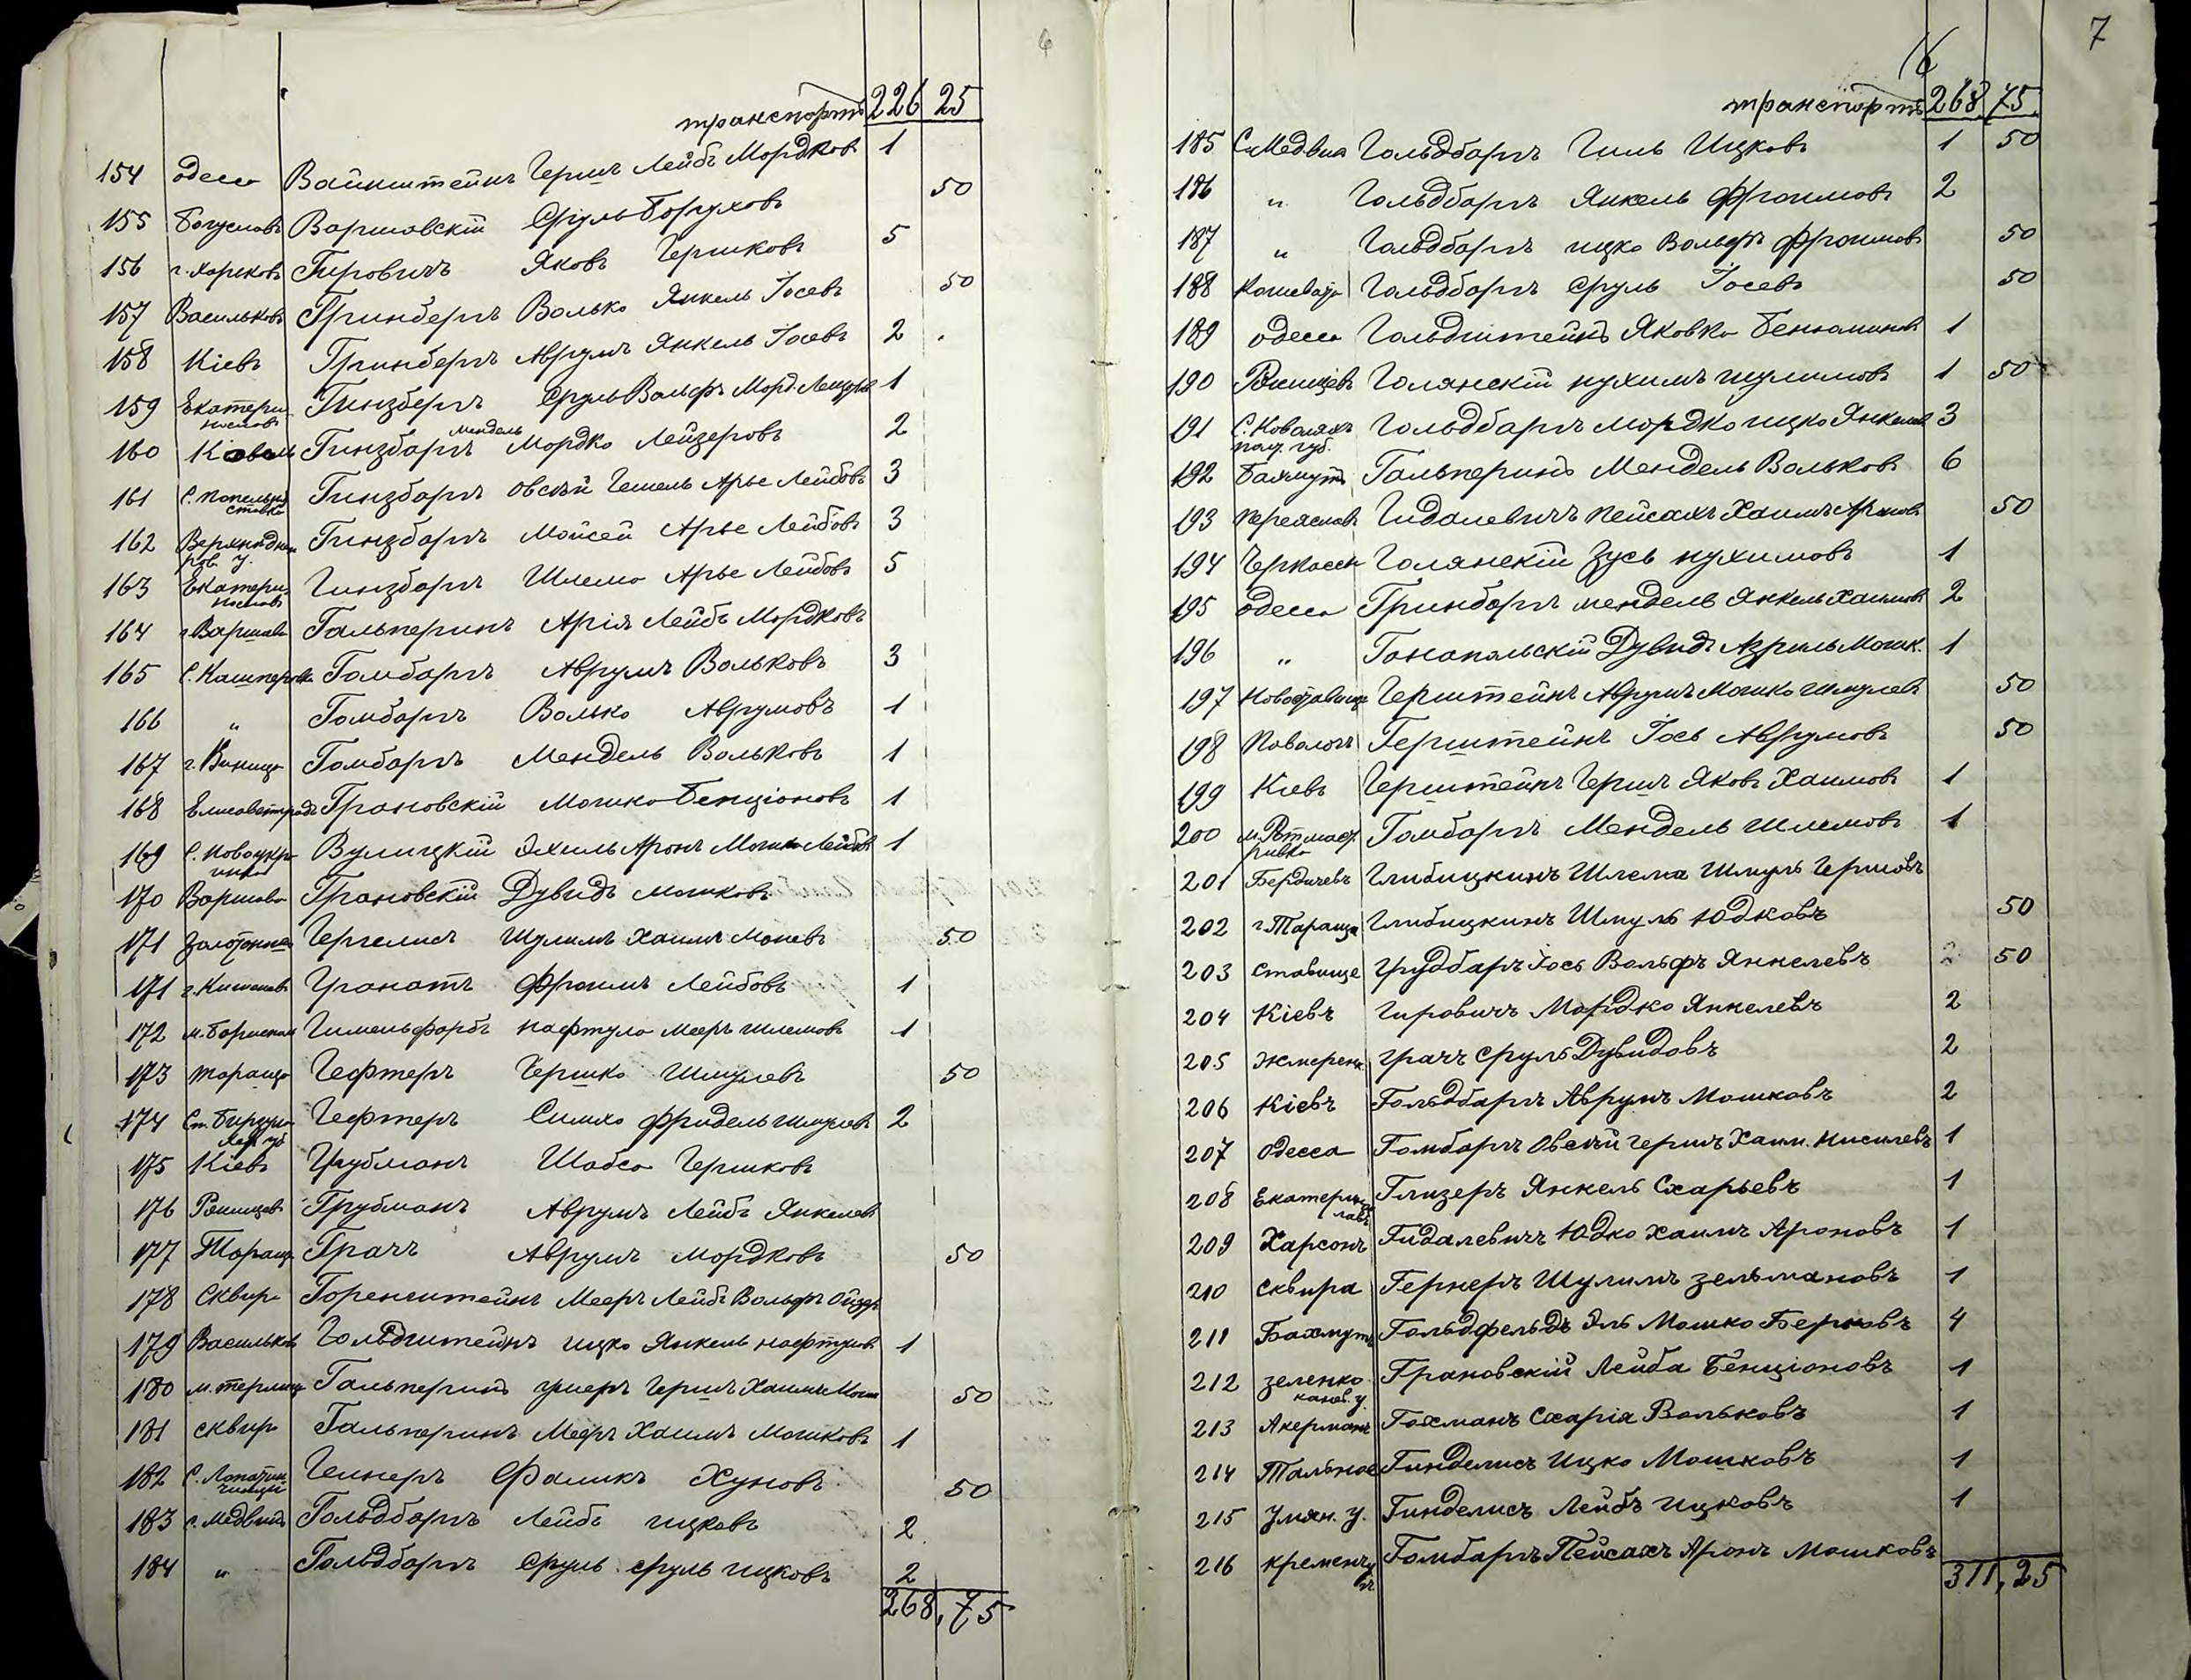 6
транспортъ 226 25
154 одесса Вайнштейнъ Гершъ Лейбъ Мордков 1
155 Богуславъ Варшавскій Сруль Боруховъ 50
156 г. Харьковъ Гировичъ Яковъ Гершковъ 5
157 Васильковъ Гринбергъ Волько Янкель Іосевъ 50
158 Кіевъ Гринбергъ Аврумъ Янкель Іосевъ 2
159 Екатери Гинзбергъ Сруль Вольфъ Морд. Лейзеров 1
нославъ мендель
160 Гинзбаргъ Мордко Лейзеровъ 2
161 С. Попельня Гинзбаргъ Овсѣй Гешель Арье Лейбовъ 3
ставка
162 Верхнидне Гинзбаргъ Мойсей Арье Лейбовъ 3
ров. у.
163 Екатери Гинзбаргъ Шлема Арье Лейбовъ 5
нославъ
164 г. Варшава Гальперинъ Арія Лейбъ Мордковъ
165 С. Кашперовка Гомбаргъ Аврумъ Вольковъ 3
166 " Гомбаргъ Волько Аврумовъ 1
167 г. Виница Гомбаргъ Мендель Вольковъ 1
168 Елисаветградъ Грановскій Мошко Бенціоновъ 1
169 С. Новоукра Вулицкій Эхиль Аронъ Мошко Лейбов 1
инка
170 Варшава Грановскій Дувидъ мошковъ
171 Золотоноша Гергелисъ Шулимъ Хаимъ Моневъ 50
171 г. Кишеневъ Гранатъ Фроимъ Лейбовъ 1
172 Гимельфарбъ нафтула мееръ шлемовъ 1
173 тараща Гефтеръ Гершко Шмулевъ 50
174 Ст. Бирзула Гефтеръ Симха Фридель шмулевъ 2
Хер. губ
175 Кіевъ Грубманъ Шабса Гершковъ
176 Рокицевъ Грубманъ Аврумъ Лейбъ Янкелев
177 Тараща Грачъ Аврумъ мордковъ 50
178 Сквира Горенштейнъ Мееръ Лейбъ Вольфъ
179 Васильковъ Гольдштейнъ ицко Янкель нафтулов 1
180 Гальперинъ Гершъ Хаимъ Мош 50
181 сквира Гальперинъ Мееръ Хаимъ Мошковъ 1
182 С. Лопатин Гейнеръ Фаликъ Хуновъ 50
183 с. Медвинъ Гольдбаргъ Лейбъ ицковъ 2
184 " Гольдбаргъ Сруль сруль ицковъ 2
268,75
7
6
транспортъ 268,75
185 С. Медвин Гольдбаргъ Гиль Ицковъ 1 50
186 " Гольдбаргъ Янкель Фроимовъ 2
187 " Гольдбаргъ ицко Вольфъ Фроимов 50
188 Кошевата Гольдбаргъ Сруль Іосевъ 50
189 одесса Гольдштейнъ Яковко Бенюминов 1
190 Рокицевъ Голянскій нухимъ шулимовъ 1 50
191 С. Коваляхъ Гольдбаргъ мордко ицко Янкелев 3
пол. губ.
192 Бахмутъ Гальперинъ Мендель Вольковъ 6
193 переяславъ Гидалевичъ пейсахъ Хаимъ Аронов 50
194 Черкассы Голянскій Зусь нухимовъ 1
195 одесса Гринбаргъ мендель Янкель Хаимов 2
196 " Гонопольскій Дувидъ Азриль Мошк. 1
197 Герштейнъ Аврумъ Мошко шмулевъ 50
198 Паволочь Герштейнъ Іось Аврумовъ 50
199 Кіевъ Герштейнъ Гершъ Яковъ Хаимовъ 1
200 м. Ротмист Гомбаргъ Мендель шлемовъ 1
ривка
201 Бердичевъ Глибицкинъ Шлема Шмуль Гершовъ
202 г. Тараща Глибицкинъ Шмуль Юдковъ 50
203 Ставище Грудбаръ Іось Вольфъ Янкелевъ 2 50
204 Кіевъ Гировичъ Мордко Янкелевъ 2
205 Жмеренк грачъ Сруль Дувидовъ 2
206 Кіевъ Гольдбаргъ Аврумъ Мошковъ 2
207 Одесса Гомбаргъ Овсѣй Гершъ Хаим. Кисилевъ 1
208 Екатерино Глизеръ Янкель Схарьевъ 1
лавъ
209 Харсонъ Гидалевичъ Юдко Хаимъ Ароновъ 1
210 Сквира Гернеръ Шулимъ зельмановъ 1
211 Бахмутъ Гольдфельдъ Эль Мошко Берковъ 4
212 зеленко Грановскій Лейба Бенціоновъ 1
канев. у.
213 Акерманъ Гохманъ Схарія Вольковъ 1
214 Тальное Гинделисъ Ицко Мошковъ 1
215 Уман. у. Гинделисъ Лейбъ Ицковъ 1
216 кременчу Гомбаргъ Пейсахъ Аронъ Мошковъ
гъ
311,25